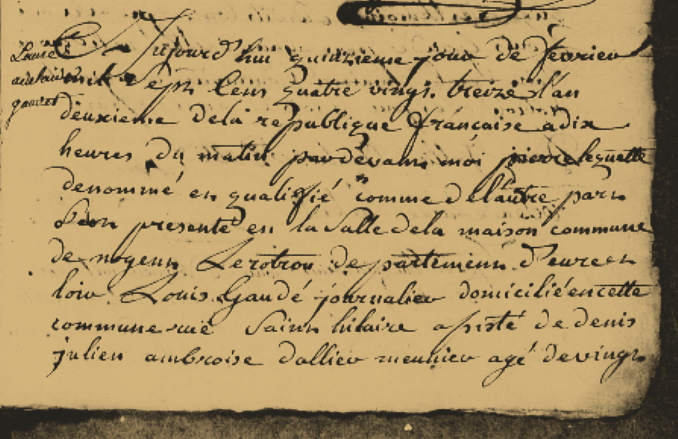 Aujourd'hui quinzieme jour de fevrier
mil Sept Cens quatre vingt treize l'an
deuxieme de la republique française a dix
heures du matin pardevant moi pierre lequette
denommé en qualifié comme de l'autre part
Seon presenté en la Salle de la maison commune
de nogent Le rotrou departement d'eure et
loir Louis Gaudé journalier domicilié en cette
commune rue Saint hilaire assisté de denis
julien ambroise dallier meunier agé de vingt